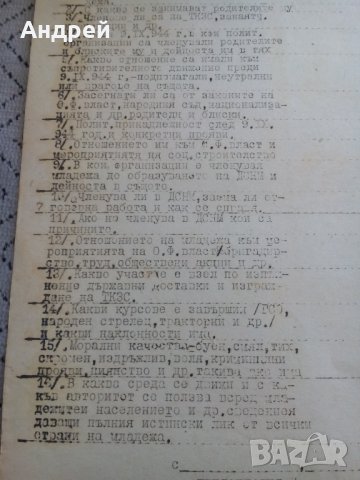 Андрей
2/. с какво се занимават родителите му
3/. Членува ли са да ТКЗС, занаятч.
партии и др.
IX.1944 г. в кои полит.
организации са членували родителите
и близките му и дейноста им в тях
5/. Какво отношение са имали към
съпротивителното движение преди
9.IX.944 г.-подпомагали, неутрални
или врагове на същата.
6/. Засегнати ли са от законите на
О.Ф.власт, народния съд, национализа-
цията и др. родители и близки.
7/. Полит. принадлежност след 9.IX.
944 год. и конкретни прояви.
8/. Отношението им към О.Ф.власт и
мероприятията на соц. строителство
9/. В коя организация е членувал
младежа до образуването на ДСНМ и
дейноста в същото.
10/. Членува ли в ДСНМ, заема ли от-
говорна работа и как се справя.
11/. Ако не членува в ДСНМ кои са
причините.
12/. Отношението на младежа към ме-
роприятията на О.Ф.власт/бригадир-
ство, труд, обществени акции и др.
13/. Какво участие е взел по изпъл-
нение държавни доставки и изграж-
дане на ТКЗС.
14/. Какви курсове е завършил /ГСО,
народен стрелец, тракторни и др./
и какви наклонности има.
15/. Морални качества-буен, смел, тих,
скромен, издръжлив, воля, криминални
прояви, пиянство и др. такива ако има
16/. В каква среда се движи и с ка-
къв авторитет се ползва всред мла-
дежта и населението и др. сведения
даващи пълния истински лик от всички
страни на младежа.
С
bazar.bg